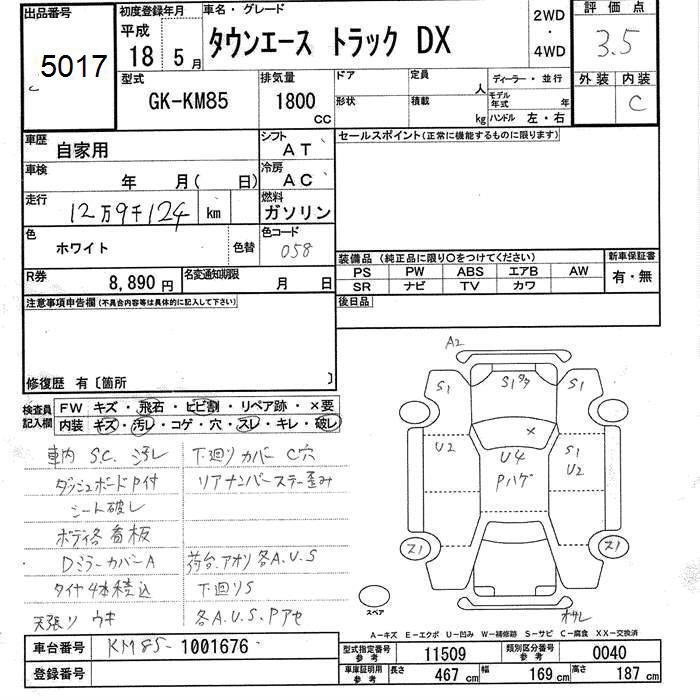 出品番号 初度登録年月 車名・グレード 評価点
5017 平成 18 5月 タウンエース トラック DX 2WD・4WD 3.5
型式 排気量 ドア 定員 人 ディーラー・並行 外装 内装
GK-KM85 1800 CC 形状 積載 kg モデル年式 年 ハンドル 左・右 C
車歴 自家用 シフト AT セールスポイント(正常に機能するものに限ります)
車検 年 月( 日) 冷房 AC
走行 12万9千124 km 燃料 ガソリン
色 ホワイト 色替 色コード 058
装備品 (純正品に限り○をつけてください) 新車保証書
PS PW ABS エアB AW 有・無
SR ナビ TV カワ
R券 8,890円 名変通知期限 月 日
後日品
注意事項申告欄(不具合内容等は具体的に記入して下さい)
修復歴 有〔箇所 〕
検査員記入欄 FW キズ・飛石・ヒビ割・リペア跡・×要
内装 キズ・汚レ・コゲ・穴・スレ・キレ・破レ
車内 S.C.汚レ 下廻リ カバー C穴
ダッシュボードP付 リアナンバーステー歪み
シート破レ
ボディ各 看板
Dミラーカバー A 荷台.アオリ 各A.U.S
タイヤ4本積込 下廻リS
天張リ ウキ 各A.U.S.Pアセ
A2
S1 S1 タタ S1
U2 × U4 Pハゲ S1 U2
ス1 ス1
スペア
オサレ
A-キズ E-エクボ U-凹み W-補修跡 S-サビ C-腐食 XX-交換済
車台番号 KM85-1001676
登録番号
型式指定番号 参考 11509 類別区分番号 参考 0040
車庫証明用 参考 長さ 467 cm 幅 169 cm 高さ 187 cm